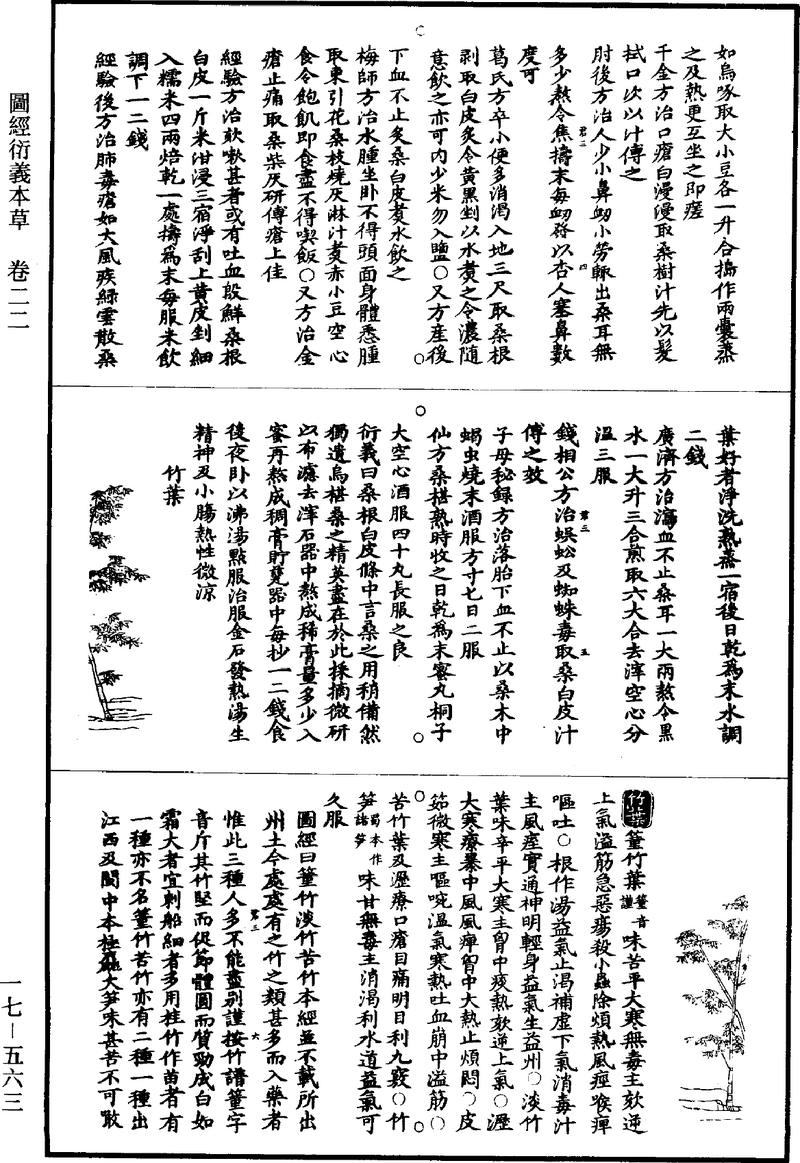 圖經衍義本草　卷二二
如烏啄取大小豆各一升合擣作兩囊蒸
之及熱更互坐之即瘥
千金方治口瘡白漫漫取桑樹汁先以髮
拭口次以汁傅之
肘後方治人少小鼻衂小勞輒出桑耳無
多少熬令焦擣末每衂發以杏人塞鼻數
度可
葛氏方卒小便多消渴入地三尺取桑根
剥取白皮炙令黃黑剉以水煑之令濃隨
意飲之亦可內少米勿入鹽○又方產後
下血不止炙桑白皮煑水飲之
梅師方治水腫坐卧不得頭面身體悉腫
取東引花桑枝燒灰淋汁煑赤小豆空心
食令飽飢即食盡不得喫飯○又方治金
瘡止痛取桑柴灰研傅瘡上佳
經驗方治欬嗽甚者或有吐血殷鮮桑根
白皮一斤米泔浸三宿淨刮上黃皮剉細
入糯米四兩焙乾一處擣爲末每服米飲
調下一二錢
經驗後方治肺毒瘡如大風疾綠雲散桑
葉好者淨洗熟蒸一宿後日乾爲末水調
二錢
廣濟方治瀉血不止桑耳一大兩熬令黑
水一大升三合煎取六大合去滓空心分
溫三服
錢相公方治蜈蚣及蜘蛛毒取桑白皮汁
傅之效
子母秘錄方治落胎下血不止以桑木中
蝎虫燒末酒服方寸匕日二服
仙方桑椹熟時收之日乾爲末蜜丸桐子
大空心酒服四十丸長服之良
衍義曰桑根白皮條中言桑之用稍備然
獨遺烏椹桑之精英盡在於此採摘微研
以布濾去滓石器中熬成稀膏量多少入
蜜再熬成稠膏貯甕器中每抄一二錢食
後夜卧以沸湯點服治服金石發熱湯生
精神及小腸熱性微涼
竹葉
竹葉
䈽竹葉䈽音謹味苦平大寒無毒主欬逆
上氣溢筋急惡瘍殺小蟲除煩熱風痙喉痺
嘔吐○根作湯益氣止渴補虛下氣消毒汁
主風痙實通神明輕身益氣生益州○淡竹
葉味辛平大寒主胷中痰熱欬逆上氣○瀝
大寒療暴中風風痺胷中大熱止煩悶○皮
筎微寒主嘔啘溫氣寒熱吐血崩中溢筋○
苦竹葉及瀝療口瘡目痛明目利九竅○竹
笋蜀本作諸笋味甘無毒主消渴利水道益氣可
久服
圖經曰䈽竹淡竹苦竹本經並不載所出
州土今處處有之竹之類甚多而入藥者
惟此三種人多不能盡別謹按竹譜䈽字
音斤其竹堅而促節體圓而質勁皮白如
霜大者宜刺船細者多用桂竹作苗者有
一種亦不名䈽竹苦竹亦有二種一種出
江西及閩中本極麤大笋味甚苦不可啖
一七—五六三